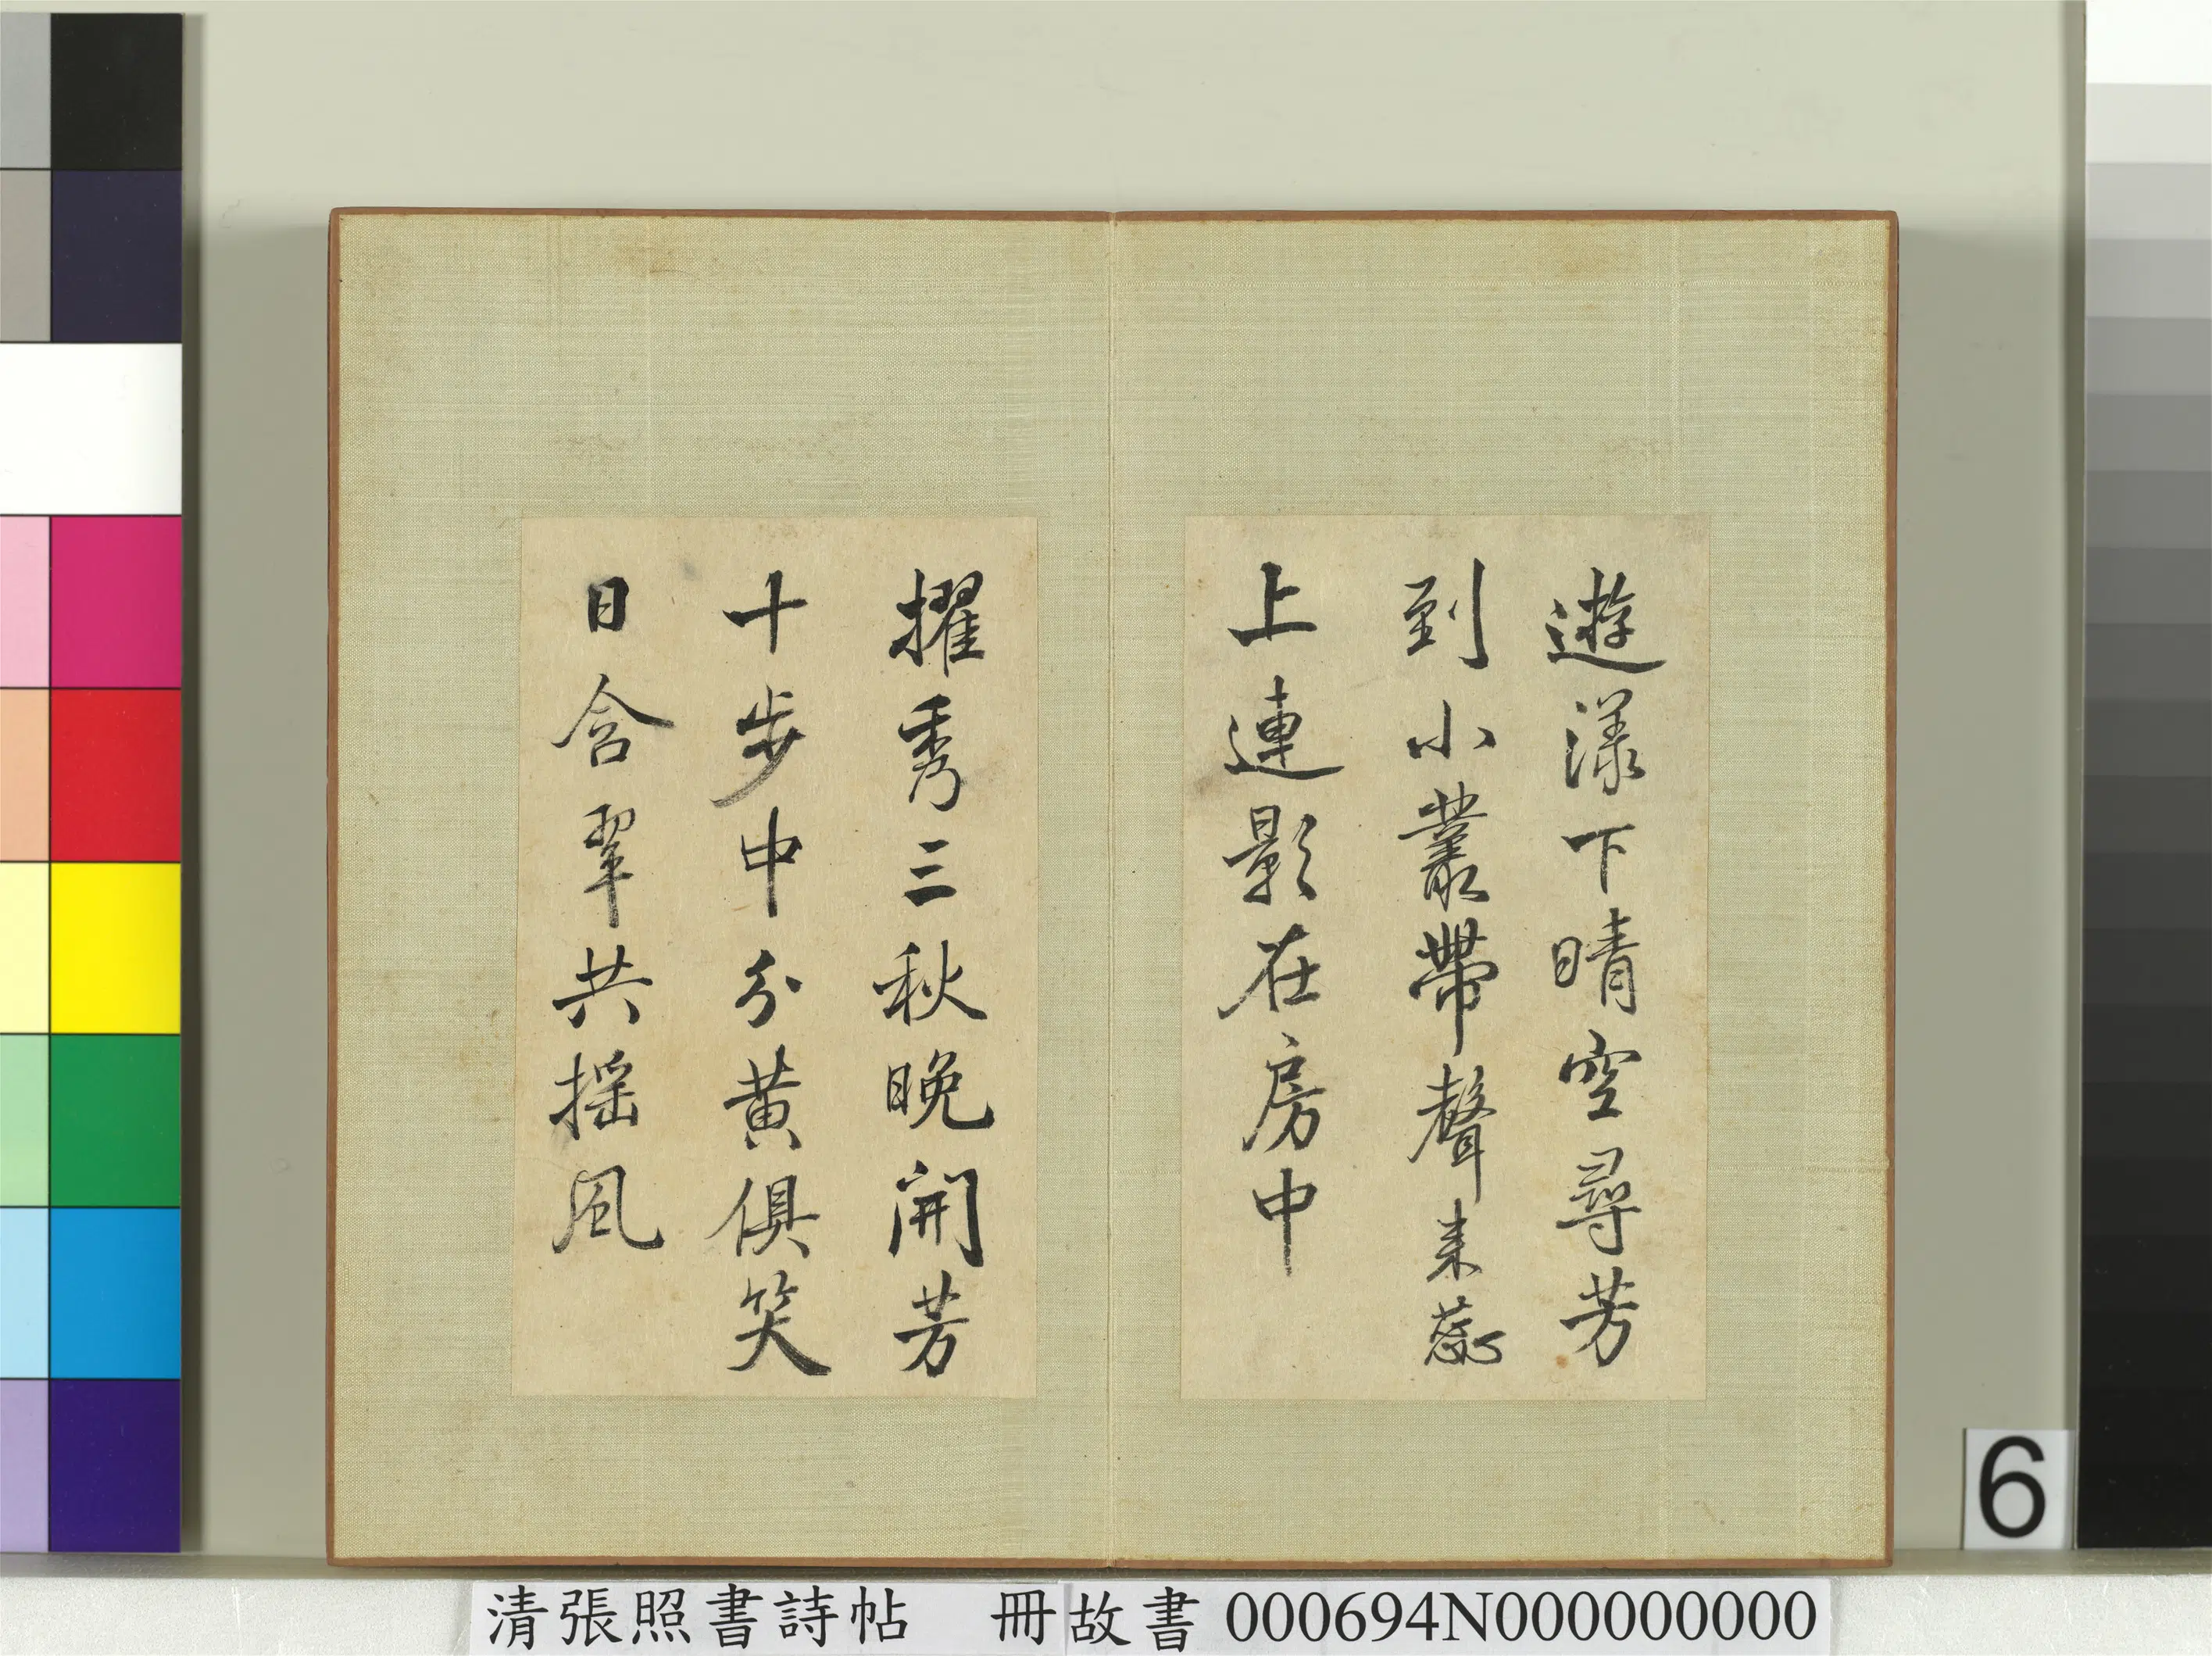 遊漾下晴空尋芳
到小叢帶聲来蕊
上連影在房中
擢秀三秋晚開芳
十步中分黄俱笑
日含翠共摇風
6
清張照書詩帖 冊故書000694N000000000